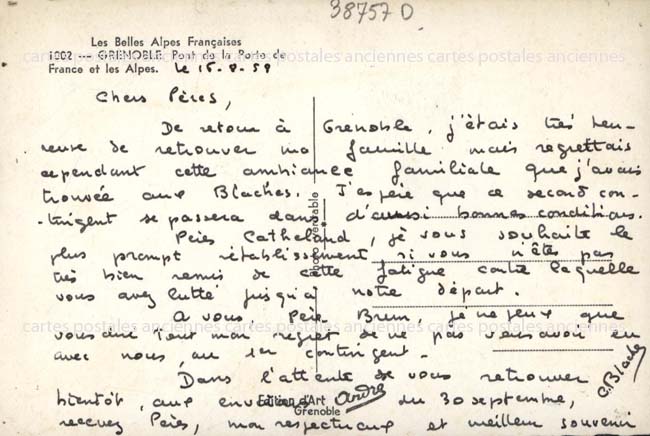 38757 D
Les Belles Alpes Françaises
1002 — GRENOBLE Pont de la Porte de
France et les Alpes. le 15.9.59
cartes postales anciennes cartes postales anciennes cartes postales anciennes
Chers Pères,
De retour à Grenoble, j'étais très heu-
reuse de retrouver ma famille mais regrettais
cependant cette ambiance familiale que j'avais
trouvée aux Blaches. J'espère que ce second con-
-tingent se passera dans d'aussi bonnes conditions.
Père Catheland, je vous souhaite le
plus prompt rétablissement si vous n'êtes pas
très bien remis de cette fatigue contre laquelle
vous avez lutté jusqu'à notre départ.
A vous, Père Brun, je ne peux que
cartes postales anciennes cartes postales anciennes cartes postales anciennes
vous dire tout mon regret de ne pas vous avoir eu
avec nous, au 1er contingent.
Dans l'attente de vous retrouver
bientôt, aux environs du 30 septembre,
recevez Pères, mon respectueux et meilleur souvenir
Edition d'Art
Grenoble